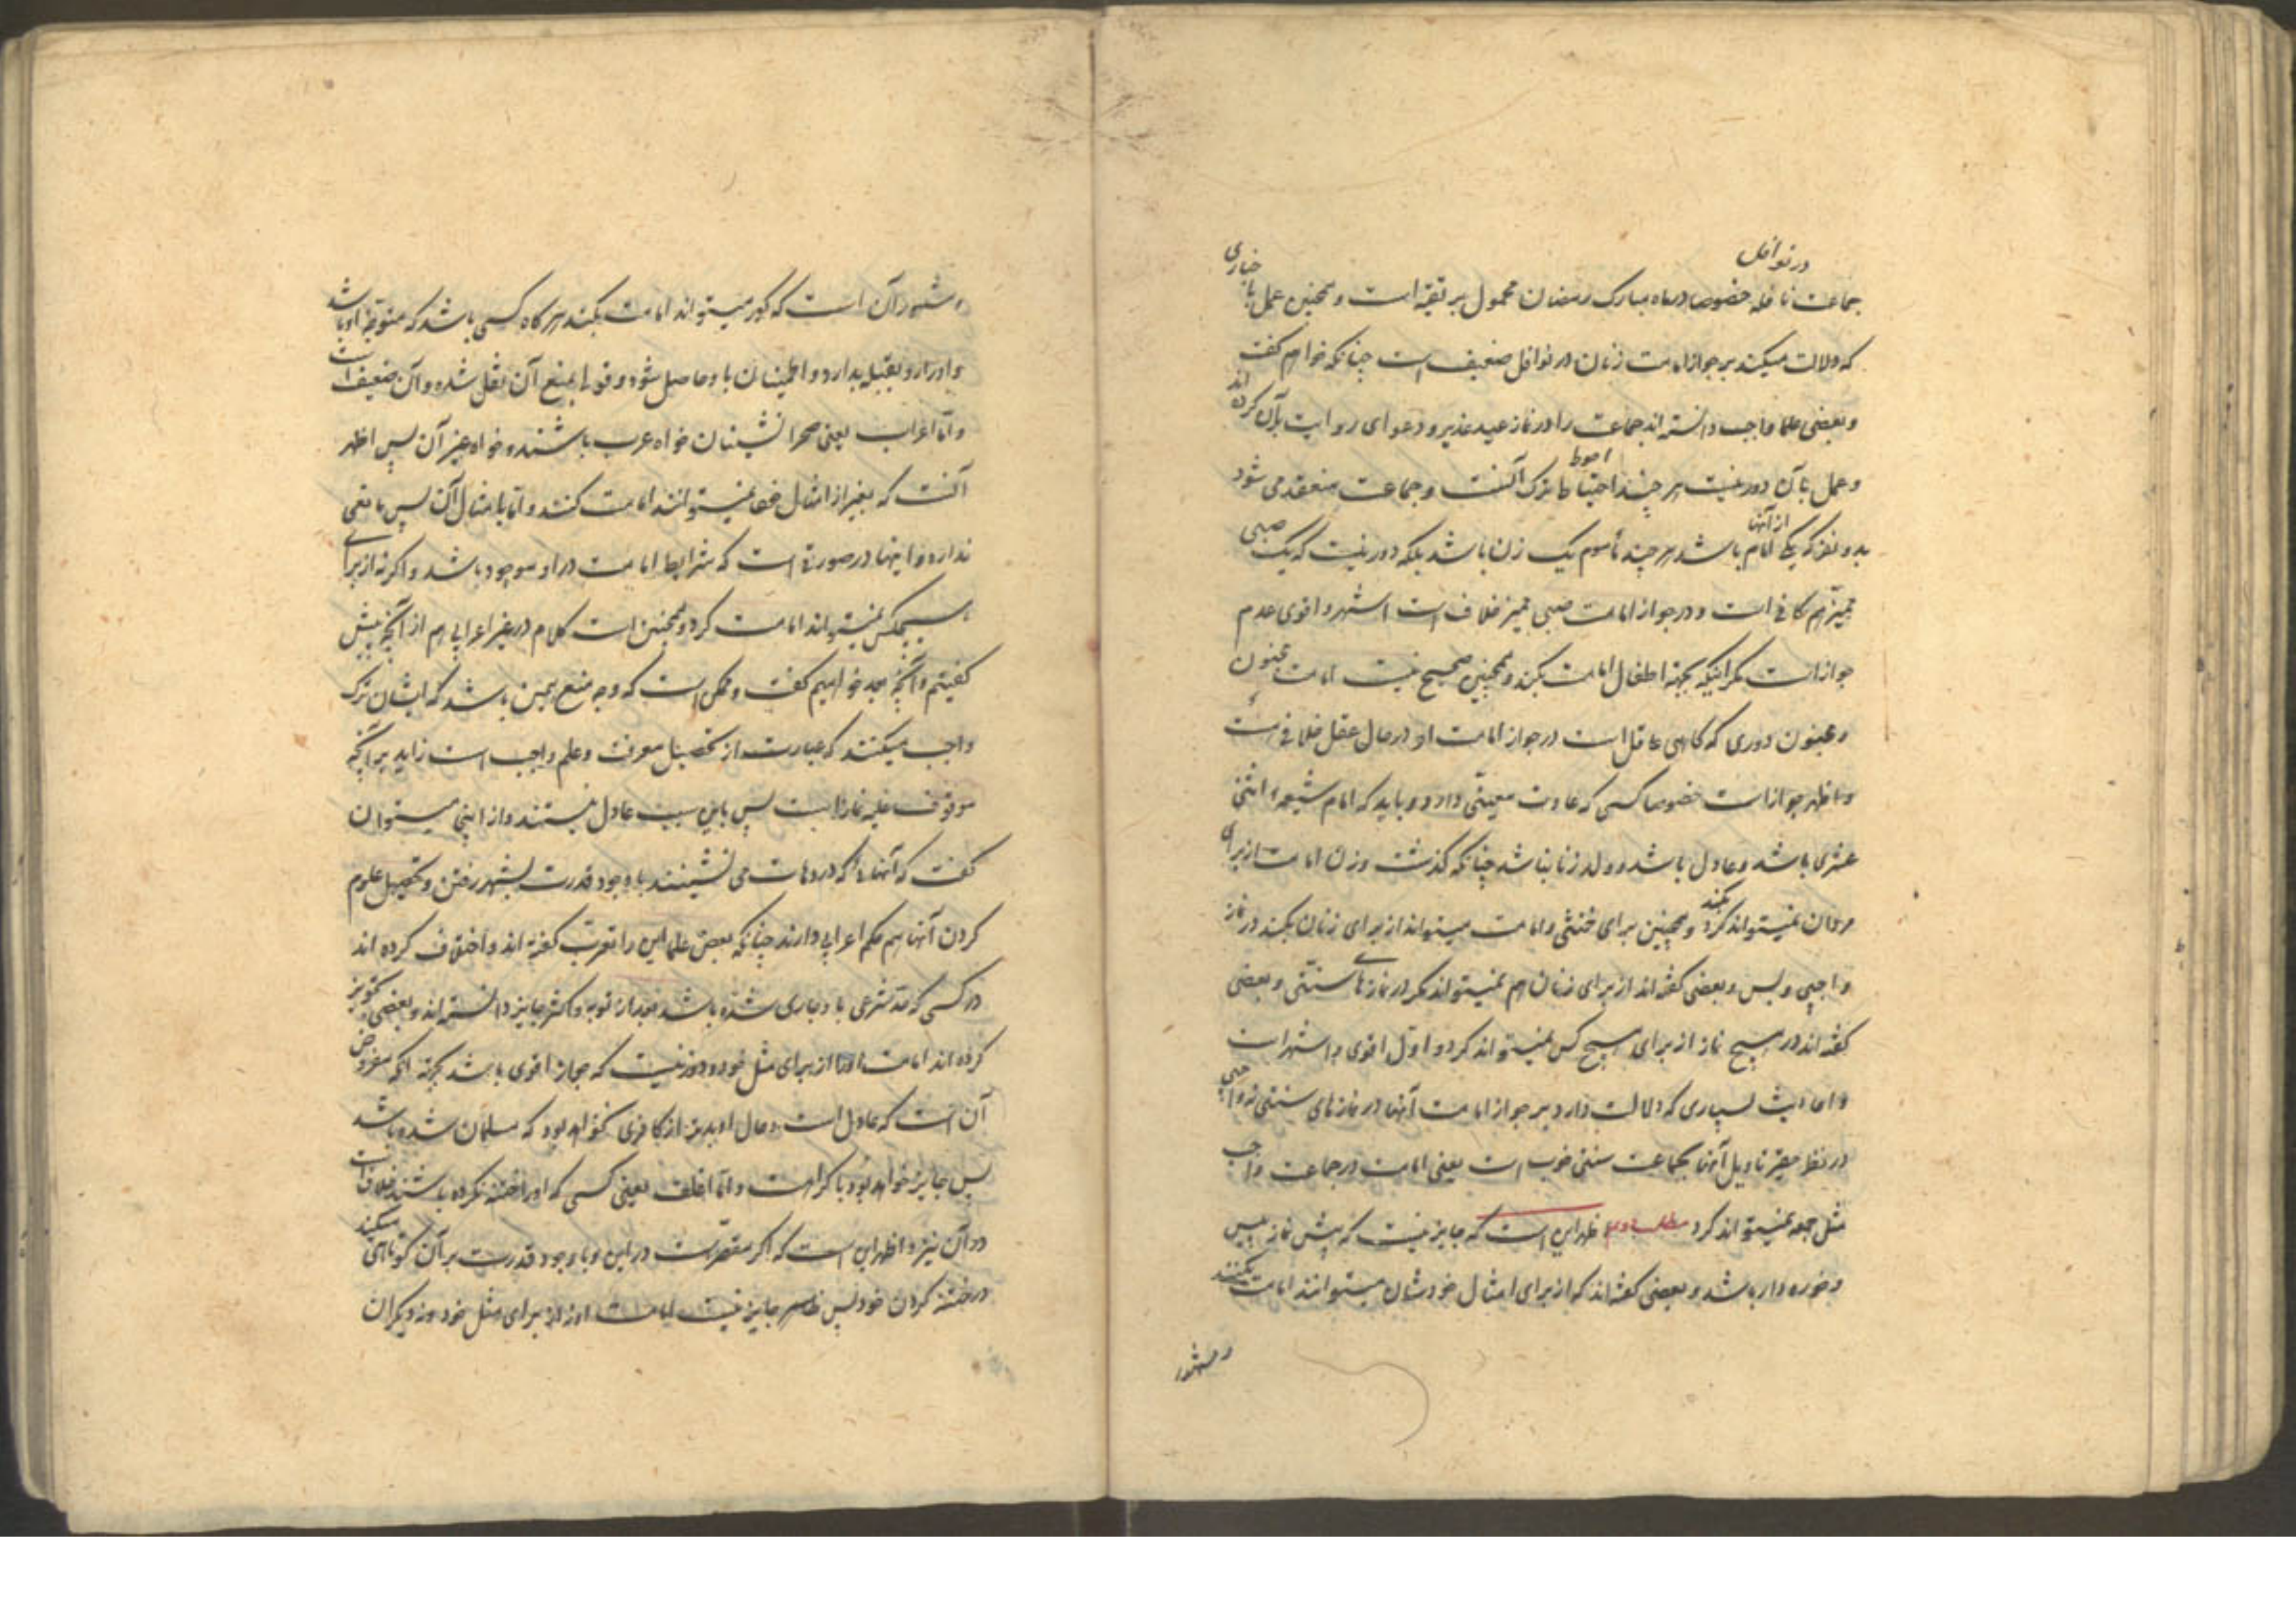 در نوافل
جماعت نافله خصوصا در ماه مبارک رمضان محمول بر تقیه است و همچنین عمل باخباری
که دلالت میکند بر جواز امامت زنان در نوافل ضعیف است چنانکه خواهم گفت
و بعضی علما واجب دانسته اند جماعت را در نماز عید غدیر و دعوای روایت بر آن کرده اند
و عمل بآن دور نیست هر چند احتیاط احوط ترک آنست و جماعت منعقد می شود
بدو نفر که یکی از آنها امام باشد هر چند مأموم یک زن باشد بلکه دور نیست که یک صبی
ممیز هم کافی است و در جواز امامت صبی ممیز خلاف است اشهر و اقوی عدم
جواز است مگر اینکه بجهة اطفال امامت بکند و همچنین صحیح نیست امامت مجنون
و مجنون دوری که گاهی عاقل است در جواز امامت او در حال عقل خلافی است
و اظهر جواز است خصوصا کسی که عادت معینی دارد و باید که امام شیعه اثنی
عشری باشد و عادل باشد و ولد زنا نباشد چنانکه گذشت و زن امامت از برای
مردان نمیتواند کرد بکند و همچنین برای خنثی و امامت میتواند از برای زنان بکند در نماز
واجبی و بس و بعضی گفته اند از برای زنان هم نمیتواند مگر در نمازهای سنتی و بعضی
گفته اند در هیچ نماز از برای هیچ کس نمیتواند کرد و اول اقوی و اشهر است
و احادیث بسیاری که دلالت دارد بر جواز امامت آنها در نمازهای سنتی نه واجبی
در نظر حقیر تاویل آنها بجماعت سنتی خوب است یعنی امامت در جماعت واجب
مثل جمعه نمیتواند کرد مطلب دوم اظهر این است که جایز نیست که پیش نماز پیس
و خوره دار باشد و بعضی گفته اند که از برای امثال خودشان میتوانند امامت بکنند
و مشهور
و مشهور آن است که کور میتواند امامت بکند هر گاه کسی باشد که متوجه او باشد
و او را رو بقبله بدارد و اطمینان باو حاصل شود و قولی بمنع آن نقل شده و آن ضعیف است
و اما اعراب یعنی صحرا نشینان خواه عرب باشند و خواه غیر آن پس اظهر
آنست که بغیر از امثال خود نمیتوانند امامت کنند و اما بامثال آن پس مانعی
ندارد و اینها در صورتی است که شرایط امامت در او موجود باشد و اگر نه از برای
هیچکس نمیتواند امامت کرد و همچنین است کلام در غیر اعرابی هم از آنچه پیش
گفتیم و آنچه بعد خواهیم گفت و ممکن است که وجه منع همین باشد که ایشان ترک
واجب میکنند که عبارت از تحصیل معرفت و علم واجب است زاید بر آنچه
موقوف علیه نماز است پس باین سبب عادل نیستند و از اینجا میتوان
گفت که آنهائی که در دهات می نشینند با وجود قدرت بشهر رفتن و تحصیل علوم
کردن آنها هم حکم اعرابی دارند چنانکه بعض علما این را تعرب گفته اند و اختلاف کرده اند
در کسی که حد شرعی باو جاری شده باشد بعد از توبه و اکثر جایز دانسته اند و بعضی تجویز
کرده اند امامت او را از برای مثل خود و دور نیست که جواز اقوی باشد بجهة آنکه مفروض
آن است که عادل است و حال او بدتر از کافری نخواهد بود که مسلمان شده باشد
پس جایز خواهد بود با کراهت و اما اغلف یعنی کسی که او را ختنه نکرده باشند خلاف است
در آن نیز و اظهر این است که اگر مقصر است در این و با وجود قدرت بر آن کوتاهی میکند
در ختنه کردن خود پس ظاهر جایز نیست امامت او نه از برای مثل خود و نه دیگران